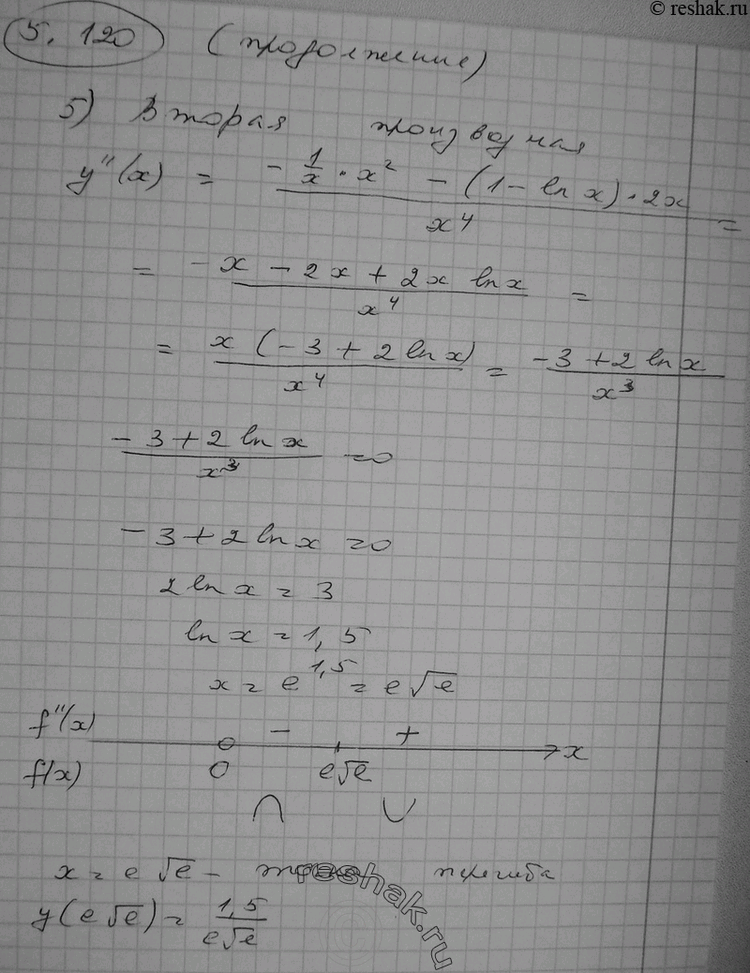 © reshak.ru
5.120 (продолжение)
5) Вторая производная
y''(x) = (-1/x · x² - (1 - ln x) · 2x)/x⁴ =
= (-x - 2x + 2x ln x)/x⁴ =
= x(-3 + 2 ln x)/x⁴ = (-3 + 2 ln x)/x³
(-3 + 2 ln x)/x³ = 0
-3 + 2 ln x = 0
2 ln x = 3
ln x = 1,5
x = e^1,5 = e√e
f''(x) - + x
f(x) 0 e√e
∩ ∪
x = e√e - точка перегиба
y(e√e) = 1,5/(e√e)
reshak.ru